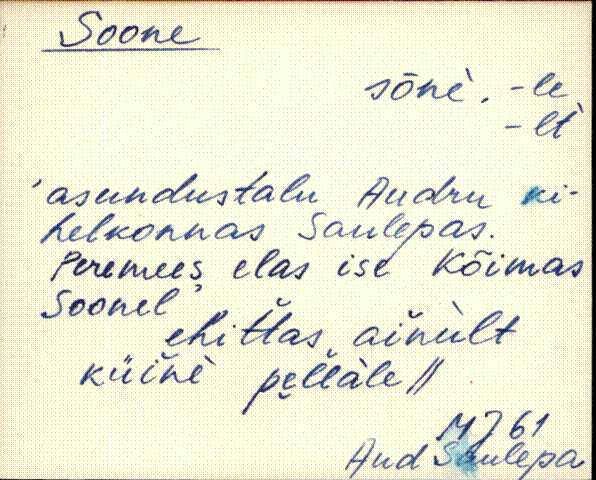 Soone
sōnè, -le
-lt̀
'asundustalu Audru ki-
helkonnas Saulepas.
Peremees elas ise Kõimas
Soonel
ehittas ainùlt
küinè pellàle //
MJ 61
Aud Saulepa